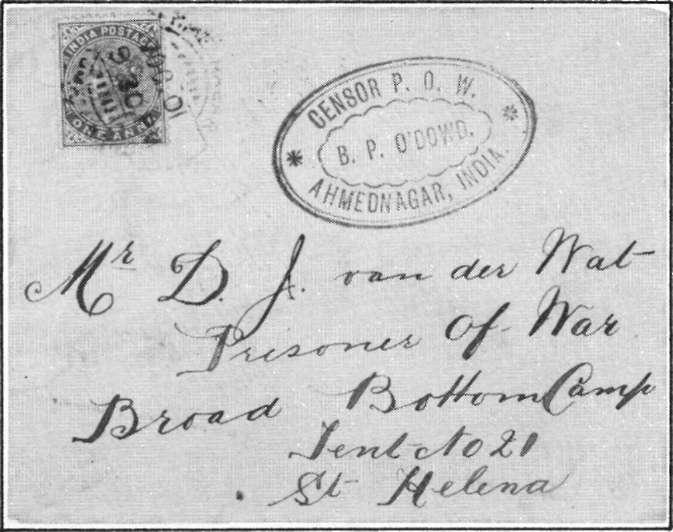 INDIA POSTAGE
ONE ANNA
CENSOR P. O. W.
B. P. O'DOWD.
AHMEDNAGAR, INDIA.
Mr D. J. van der Wat
Prisoner Of War
Broad Bottom Camp
Tent No 21
St Helena